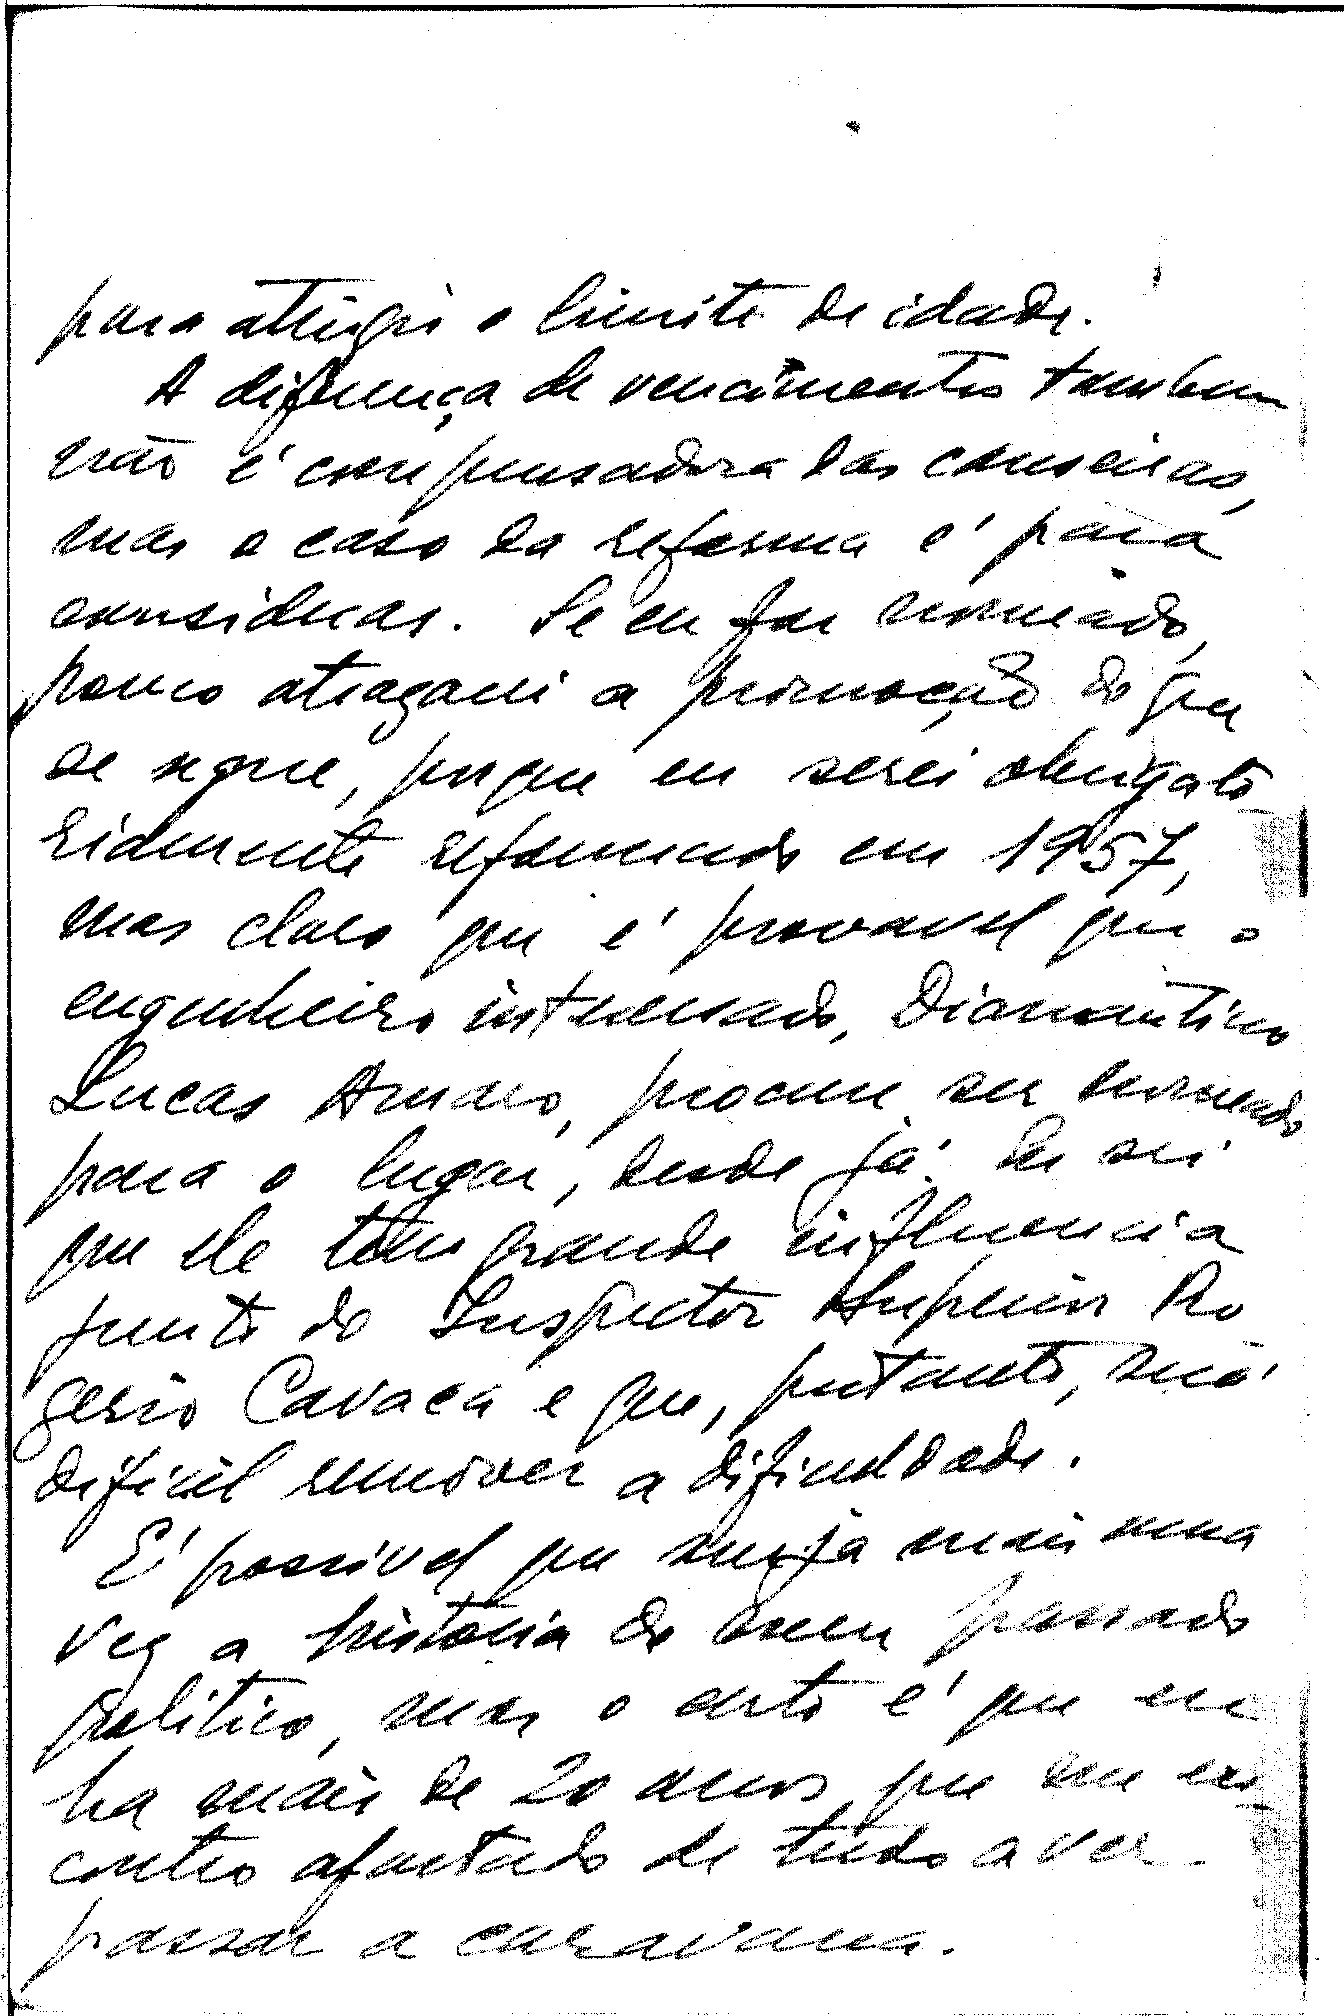 para atingir o limite de idade.
A diferença de vencimentos tambem
não é compensadora das canseiras,
mas o caso da reforma é para
considerar. Se eu for nomeado,
pouco atrazarei a promoção do que
se segue, porque eu serei obrigato-
riamente reformado em 1957,
mas claro que é provavel que o
engenheiro interessado, Diamantino
Lucas Amaro, procure ser nomeado
para o lugar, desde já. Eu sei
que ele tem grande influencia
junto do Inspector Superior Ro-
gerio Cavaca e que, portanto, não é
dificil remover a dificuldade.
É possivel que surja mais uma
vez a historia do meu passado
politico, mas o certo é que eu
ha mais de 20 anos que me en-
contro afastado de tudo a ver
passar a caravana.